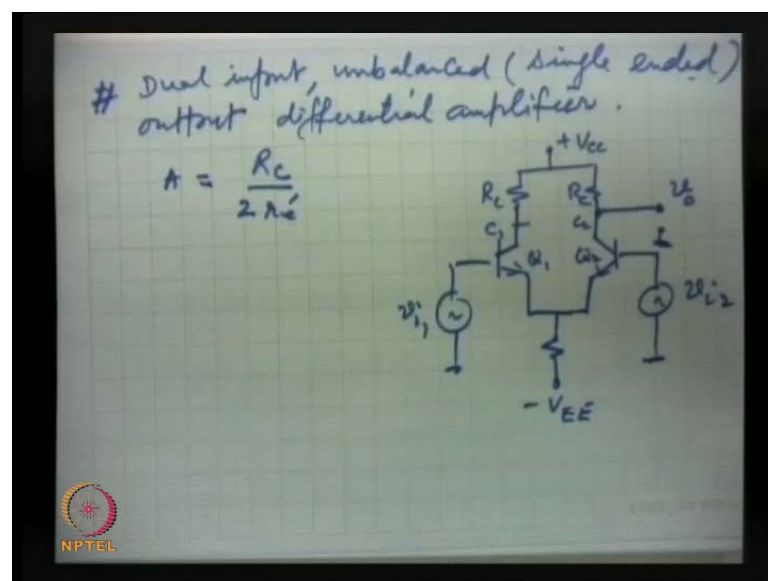 # Dual input, unbalanced (single ended)
output differential amplifier.
A = Rc / 2 ré
+ Vcc
Rc
Rc
v0
C1
C2
Q1
Q2
vi1
vi2
- VEE
NPTEL